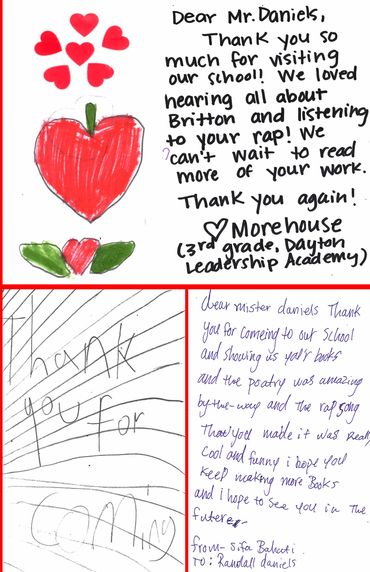 Dear Mr. Daniels,
Thank you so
much for visiting
our school! We loved
hearing all about
Britton and listening
to your rap! We
can't wait to read
more of your work.
Thank you again!
♡ Morehouse
(3rd grade, Dayton
Leadership Academy)
Thank
you for
coming
dear mister daniels Thank
you for comeing to out School
and showing us your books
and the poatry was amazing
by-the-way and the rap song
That you made it was really
Cool and funny i hope you
keep making more Books
and i hope to see you in The
futere
from- Sifa
To: Randall daniels